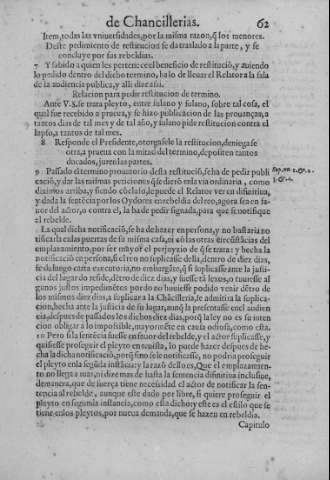 de Chancillerias. 62
Item, todas las vniuersidades, por la misma razon, q̃ los menores.
Deste pedimiento de restitucion se da traslado a la parte, y se
concluye por sus rebeldias.
7 Y sabido a quien les pertenece el beneficio de restitució, y auiendo
lo pedido dentro del dicho termino, ha lo de lleuar el Relator a la sala
de la audiencia publica, y alli dize assi.
Relacion para pedir restitucion de termino.
Ante V.S. se trata pleyto, entre fulano y fulano, sobre tal cosa, el
qual fue recebido a prueua, y se hizo publicacion de las prouanças, a
tantos dias de tal mes y de tal año, y fulano pide restitucion contra el
lapso, a tantos de tal mes.
8 Responde el Presidente, otorgasele la restitucion, deniegase
otra, a prueua con la mitad del termino, depositen tantos
ducados, juren las partes.
9 Passado el termino prouatorio desta restitució, se ha de pedir publi
cació, y dar las mismas peticiones q̃ se dierō en la via ordinaria, como
diximos arriba, y siendo cōcluso, lo puede el Relator ver en difinitiua,
y dada la sentēcia por los Oydores en rebeldia del reo, agora sea en fa-
uor del actor, o contra el, la ha de pedir signada, para que se notifique
el rebelde.
La qual dicha notificació, se ha de hazer en persona, y no bastaria no
tificarla en las puertas de su misma casa, ni cō las otras circūstācias del
emplazamiento, por ser mayor el perjuyzio de q̃ se trata: y hecha la
notificació en persona, si el reo no suplicasse della, dentro de diez dias,
se da luego carta executoria, no embargāte, q̃ si suplicasse ante la justi-
cia del lugar do reside, dētro de diez dias, y fuesse tā lexos, o tuuiesse al
gunos justos impedimētos por do no huuiesse podido venir dētro de
los mismos diez dias, a suplicar a la Chācilleria, se admitira la suplica-
cion, hecha ante la justicia de su lugar, aunq̃ la presentasse en el audien
cia, despues de passados los dichos diez dias, porq̃ la ley no es su inten
cion obligar a lo impossible, mayormēte en causa odiosa, como esta.
10 Pero si la sentēcia fuesse en fauor del rebelde, y el actor suplicasse, y
quisiesse proseguir el pleyto en reuista, lo puede hazer despues de he-
cha la dicha notificació, porq̃ sino se le notificasse, no podria proseguir
el pleyto en la segūda instācia: y la razō dello es, Que el emplazamien-
to no llega a mas, ni dize mas de hasta la sentencia difinitiua inclusiue,
de manera, que de fuerça tiene necessidad el actor de notificar la sen-
tencia al rebelde, aunque este dado por libre, si quiere proseguir el
pleyto en segunda instancia, como esta dicho: y este es el estilo que se
tiene en los pleytos, por nueua demanda, que se hazen en rebeldia.
Capitulo